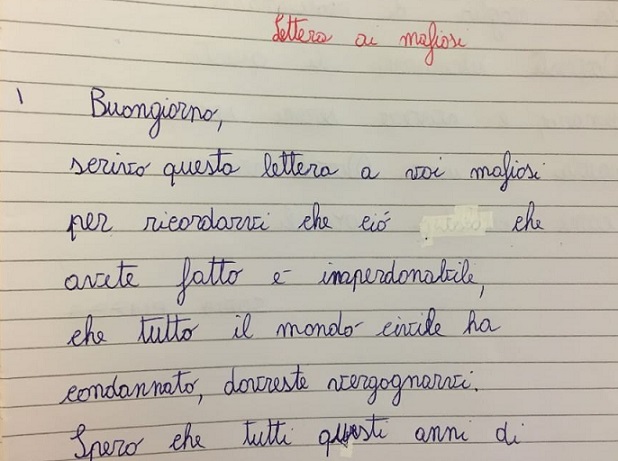 Lettera ai mafiosi
1 Buongiorno,
scrivo questa lettera a voi mafiosi
per ricordarvi che ciò che
avete fatto è inaperdonabile,
che tutto il mondo civile ha
condannato, dovreste vergognarvi.
Spero che tutti questi anni di